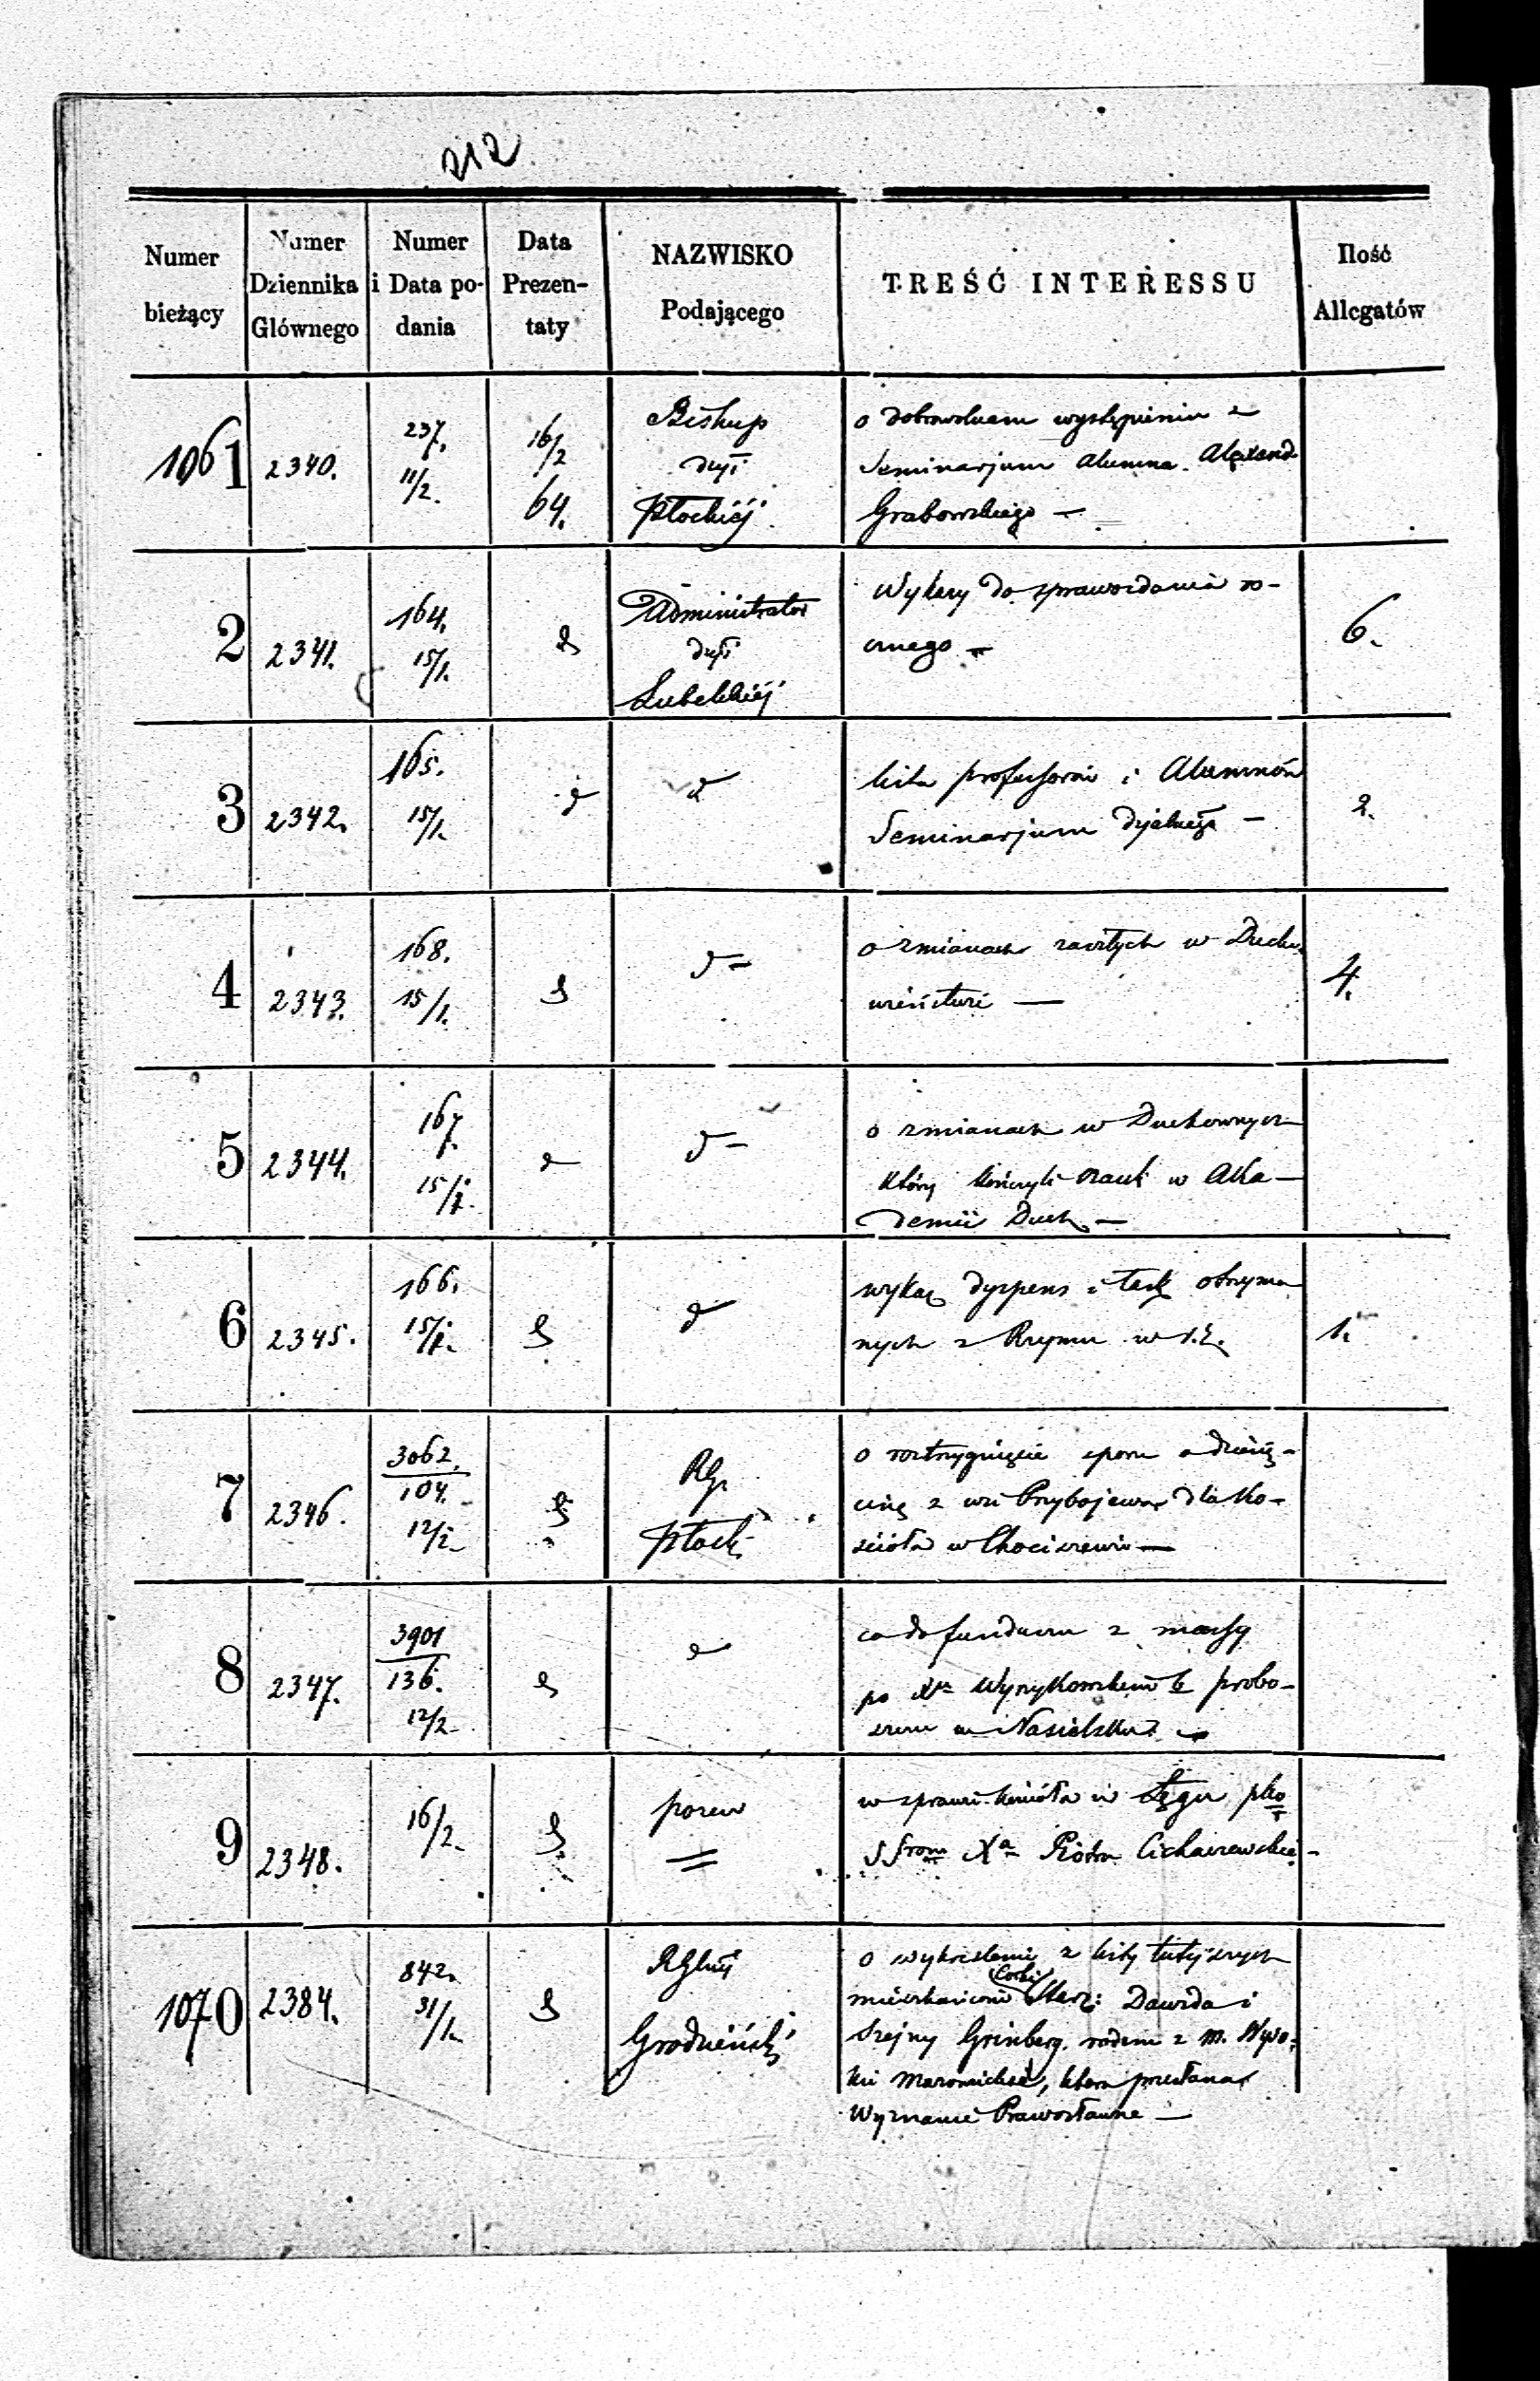 212
Numer bieżący
Numer Dziennika Głównego
Numer i Data podania
Data Prezentaty
NAZWISKO Podającego
TREŚĆ INTERESSU
Ilość Allegatów
1061 2340. 237. 11/2. 16/2 64. Biskup dyi Płockiéj
o dobrowolnem wystąpieniu z
Seminarjum Alumna Alexand.
Grabowskiego —
2 2341. 164. 15/1. d Administrator dyi Lubelskiéj
Wykazy do sprawozdania ro-
cznego — 6.
3 2342. 165. 15/1. d d
lista professorów i Alumnów
Seminarjum — 2.
4 2343. 168. 15/1. d d =
o zmianach zaszłych w Ducho
wieństwie — 4.
5 2344. 167. 15/1. d d —
o zmianach w Duchownych
który kończyli nauk w Aka—
demii Duch. —
6 2345. 166. 15/1. d d
wykaz dyspens i łask otrzyma
nych z Rzymu w r. z. 1.
7 2346. 3062. 104. 12/2 d RG. Płock.
o roztrzygnięcie sporu o dziesię-
cinę z wsi Przybojewo dla ko-
ścioła w Chociszewie —
8 2347. 3901 136. 12/2 d d
co do funduszu z massy
po Xdzu Wyrzykowskim b. probo-
szczu w Nasielsku —
9 2348. 16/2. d
w sprawie kościoła w Łęgu
Xa Piotra
1070 2384. 842. 31/1. d RGlny Grodzieński
o wykreślenie z listy tutejszych
mieszkańców Córki Dawida i
Szejny Grinberg. rodem z m. Wyso-
kie Mazowieckie, która przyjęła
Wyznanie Prawosławne —